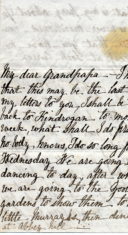 My dear Grandpapa – I
that this may be the last
my letters to you, I shall be
back to Kindrogan to my
next, what shall I do for
nobody knows, I do so long for
Wednesday. We are going to
dancing to day, after w
we are going to the Goos
gardens to show them to
little Murray is, then dinner
at Abbey